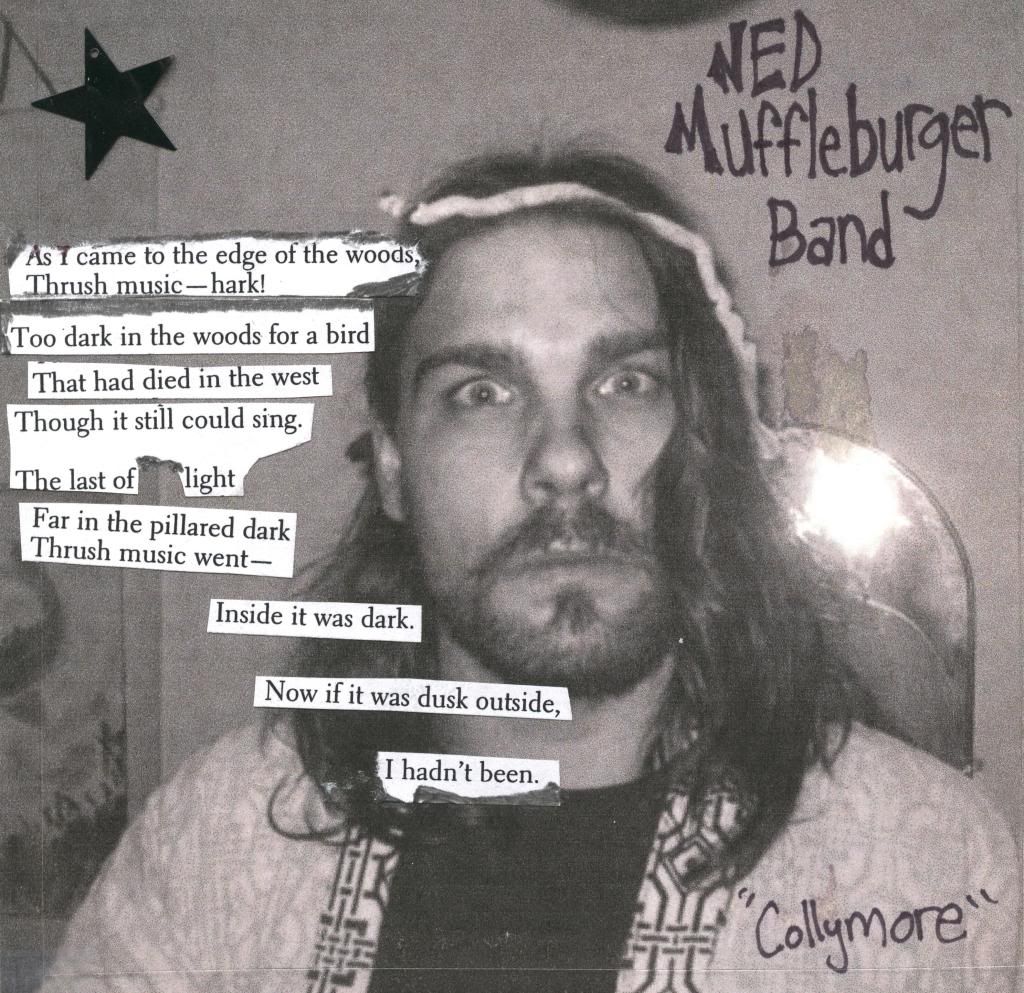 NED
Muffleburger
Band
As I came to the edge of the woods,
Thrush music—hark!
Too dark in the woods for a bird
That had died in the west
Though it still could sing.
The last of light
Far in the pillared dark
Thrush music went—
Inside it was dark.
Now if it was dusk outside,
I hadn't been.
"Collymore"